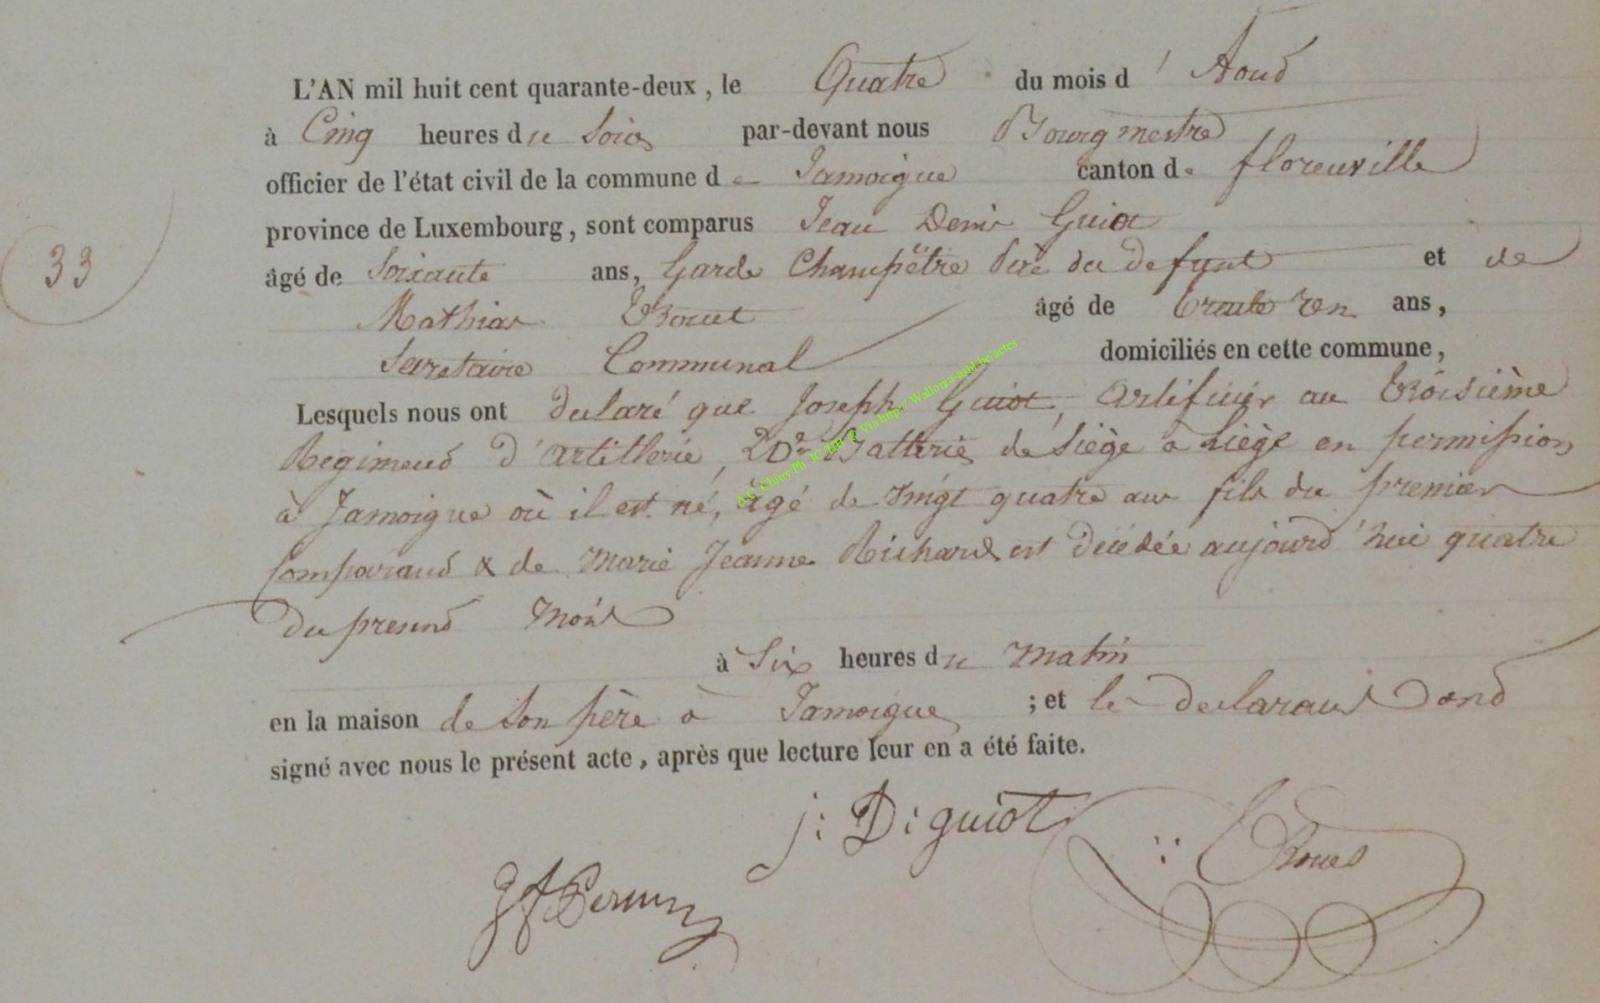 L'AN mil huit cent quarante-deux, le Quatre du mois d' Aout
à Cinq heures du Soir par-devant nous Bourgmestre
officier de l'état civil de la commune de Jamoigne canton de florenville
province de Luxembourg, sont comparus Jean Denis Guiot
33
âgé de Soixante ans, Garde Champêtre Père du defunt et de
Mathias âgé de trente ans,
Secretaire Communal domiciliés en cette commune,
Lesquels nous ont declaré que Joseph Guiot, Artificier au troisième
Regiment d'artillerie, 20e Batterie de Siège à Liège en permission
à Jamoigne où il est né, âgé de vingt quatre ans fils du premier
Comparant & de Marie Jeanne Richard est décédée aujourd'hui quatre
du present Mois
à Six heures du matin
en la maison de Son père à Jamoigne ; et les declarants ont
signé avec nous le présent acte, après que lecture leur en a été faite.
j: D: guiot